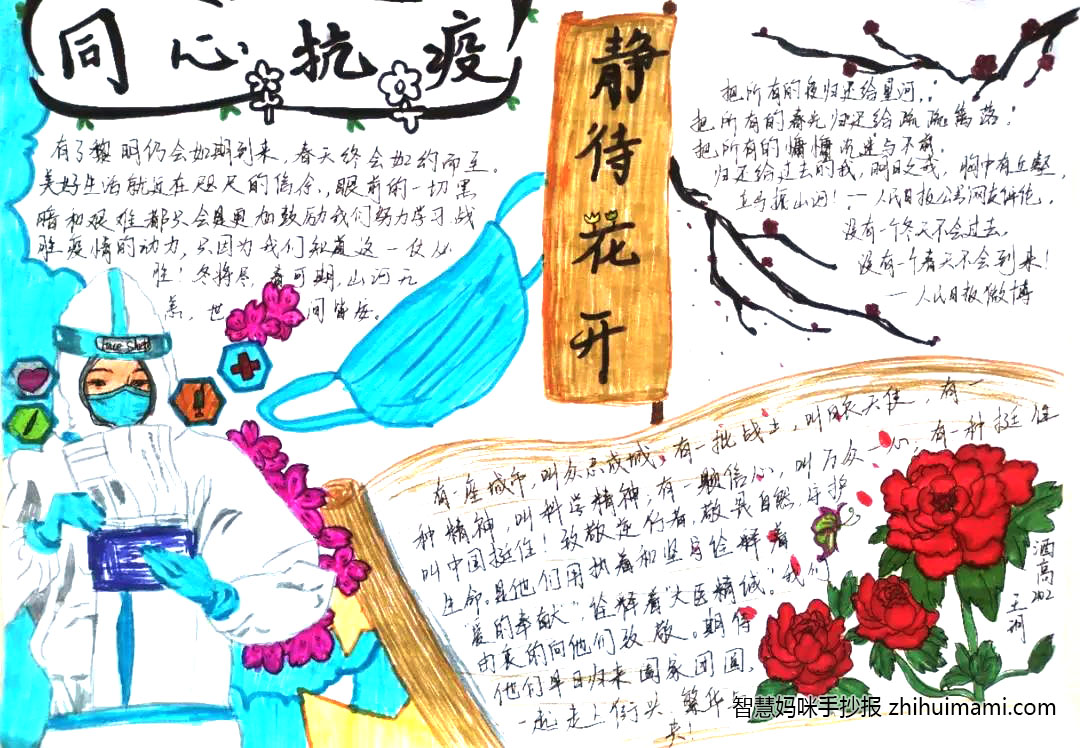 同心抗疫
有了黎明仍会如期到来，春天终会如约而至。
美好生活就近在咫尺的信念，眼前的一切黑
暗和艰难都只会是更加鼓励我们努力学习、战
胜疫情的动力，只因为我们知道这一仗必
胜！冬将尽，春可期，山河无
恙，世间皆安。
Face Shield
静待花开
把所有的夜归还给星河，
把所有的春光归还给疏疏篱落，
把所有的慵慵沉迷与不前，
归还给过去的我，明日之我，胸中有丘壑，
立马振山河！
没有一个冬天不会过去，
没有一个春天不会到来！
——人民日报微博
有一座城市，叫众志成城，有一批战士，叫白衣天使，有一
种精神，叫科学精神，有一颗信心，叫万众一心，有一种挺住
叫中国挺住！致敬逆行者，敬畏自然，守护
生命。是他们用执着和坚守诠释着
"爱的奉献"，诠释着"大医精诚"。我们
由衷的向他们致敬。期待
他们早日归来阖家团圆，
一起走上街头，繁华
来！
酒高202
王珂
智慧妈咪手抄报 zhihuimami.com